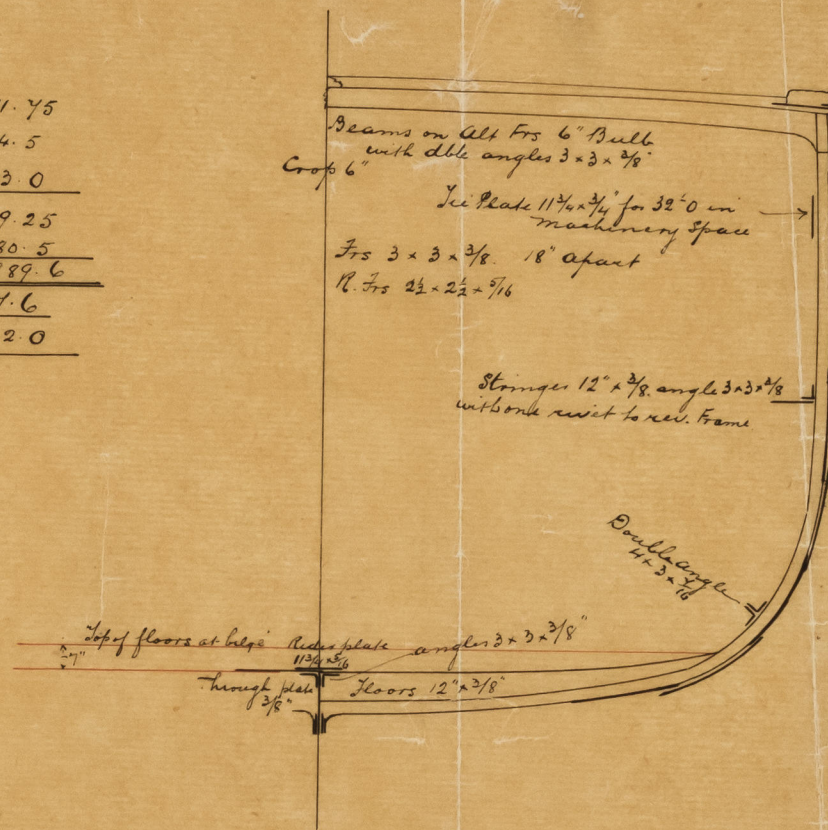 1.75
4.5
3.0
9.25
80.5
89.6
.6
2.0
Beams on Alt Frs 6" Bulb
with dble angles 3 × 3 × 3/8"
Crop 6"
Tie Plate 11 3/4 × 3/4" for 32'-0 in
machinery Space
Frs 3 × 3 × 3/8. 18" apart
R. Frs 2 1/2 × 2 1/2 × 5/16
Stringer 12" × 3/8. angle 3×3×3/8
with one rivet to rev. Frame
Double angle
4 × 3 × 7/16
Top of floors at bilge
7"
Rider plate
11 3/4 × 5/16
angles 3 × 3 × 3/8"
Through plate
3/8"
Floors 12" × 3/8"